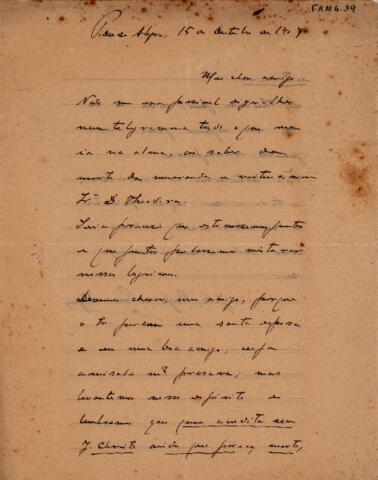 FAMG.39
Pouso Alegre, 15 de Outubro de 19
Meu caro amigo
Não me era possivel dizer lhe
num telegramma tudo o que me
ia na alma, ao saber da
morte da veneranda e virtuosissima
Srª D. Theodora.
Seria preciso que estivessemos juntos
e que juntos pudessemos misturar
nossas lagrimas.
Devemos chorar, meu amigo, porque
o Sr perdeu uma santa esposa
e eu uma boa amiga, cuja
amisade mtº presava; mas
levantemos nosso espirito e
lembremos que quem acredita em
J. Christo ainda que pareça morto,